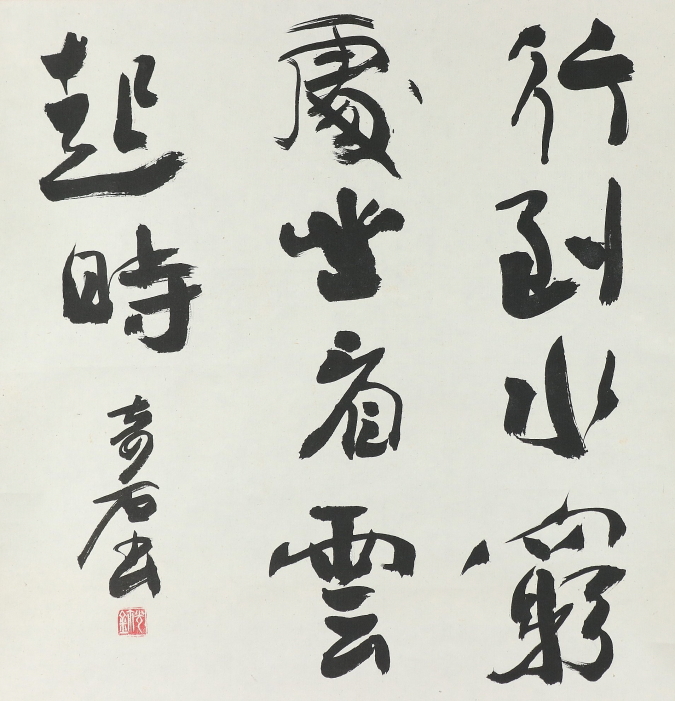 行到水窮
處坐看雲
起時
奇石書